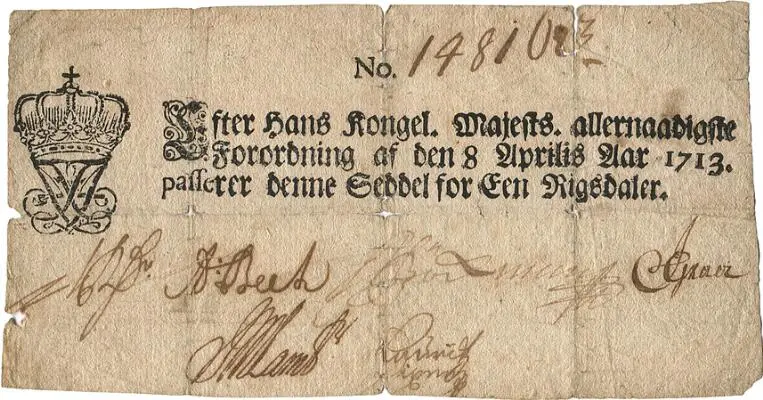 No. 148102
Efter Hans Kongel. Majests. allernaadigste
Forordning af den 8 Aprilis Aar 1713.
passerer denne Seddel for Een Rigsdaler.
A: Bech
Laurit